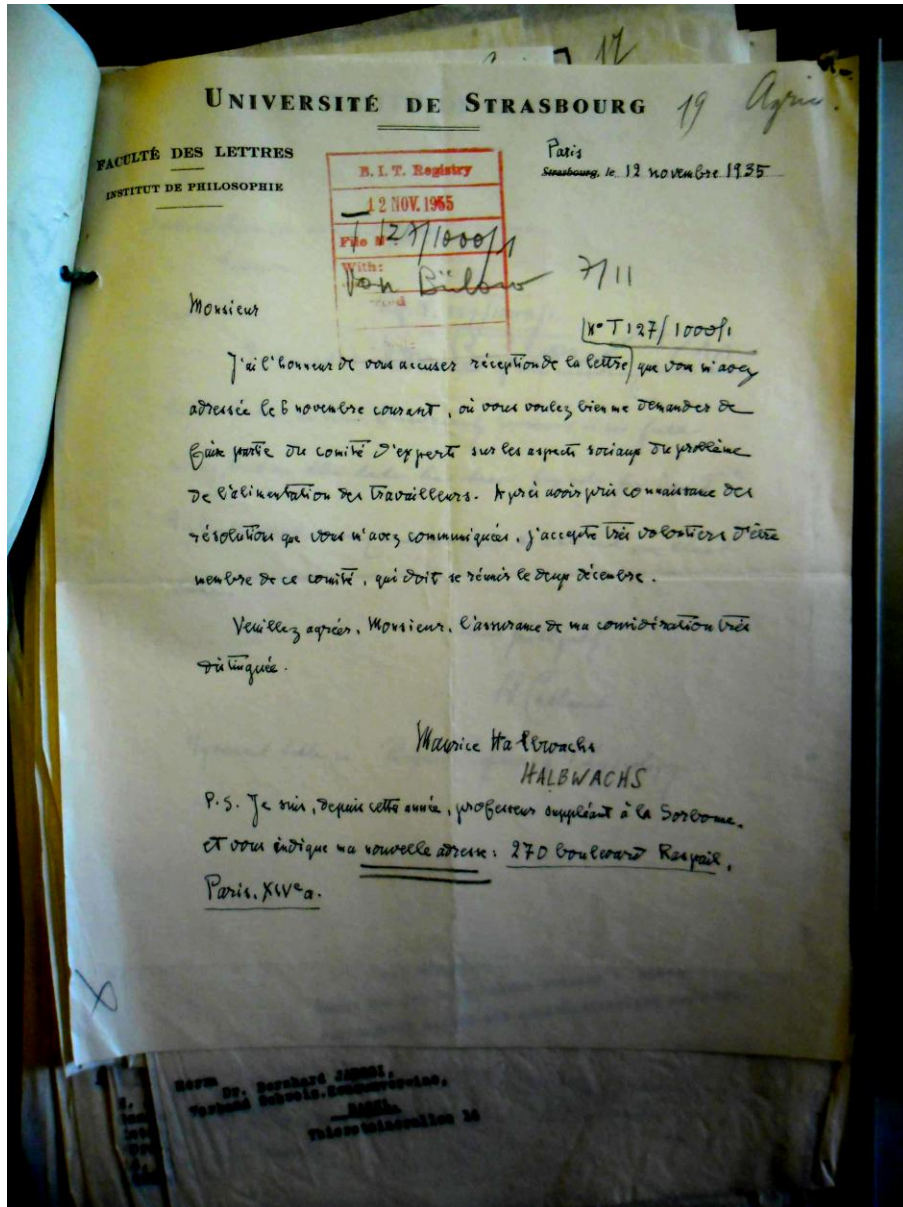 17
UNIVERSITÉ DE STRASBOURG
19 Agric.
FACULTÉ DES LETTRES
INSTITUT DE PHILOSOPHIE
Paris
Strasbourg, le 12 novembre 1935
B. I. T. Registry
12 NOV. 1935
File No T 127/1000/1
With:
Von Bülow 7/11
Monsieur
(N° T 127/1000/1
J'ai l'honneur de vous accuser réception de la lettre) que vous m'avez
adressée le 6 novembre courant, où vous voulez bien me demander de
faire partie du comité d'experts sur les aspects sociaux du problème
de l'alimentation des travailleurs. Après avoir pris connaissance des
résolutions que vous m'avez communiquées, j'accepte très volontiers d'être
membre de ce comité, qui doit se réunir le deux décembre.
Veuillez agréer, Monsieur, l'assurance de ma considération très
distinguée.
Maurice Halbwachs
HALBWACHS
P.S. Je suis, depuis cette année, professeur suppléant à la Sorbonne,
et vous indique ma nouvelle adresse : 270 boulevard Raspail,
Paris, XIVe a.
Herrn
Dr. Bernhard
Verband Schweiz. Konsumvereine,
BASEL
Thiersteinerallee 14